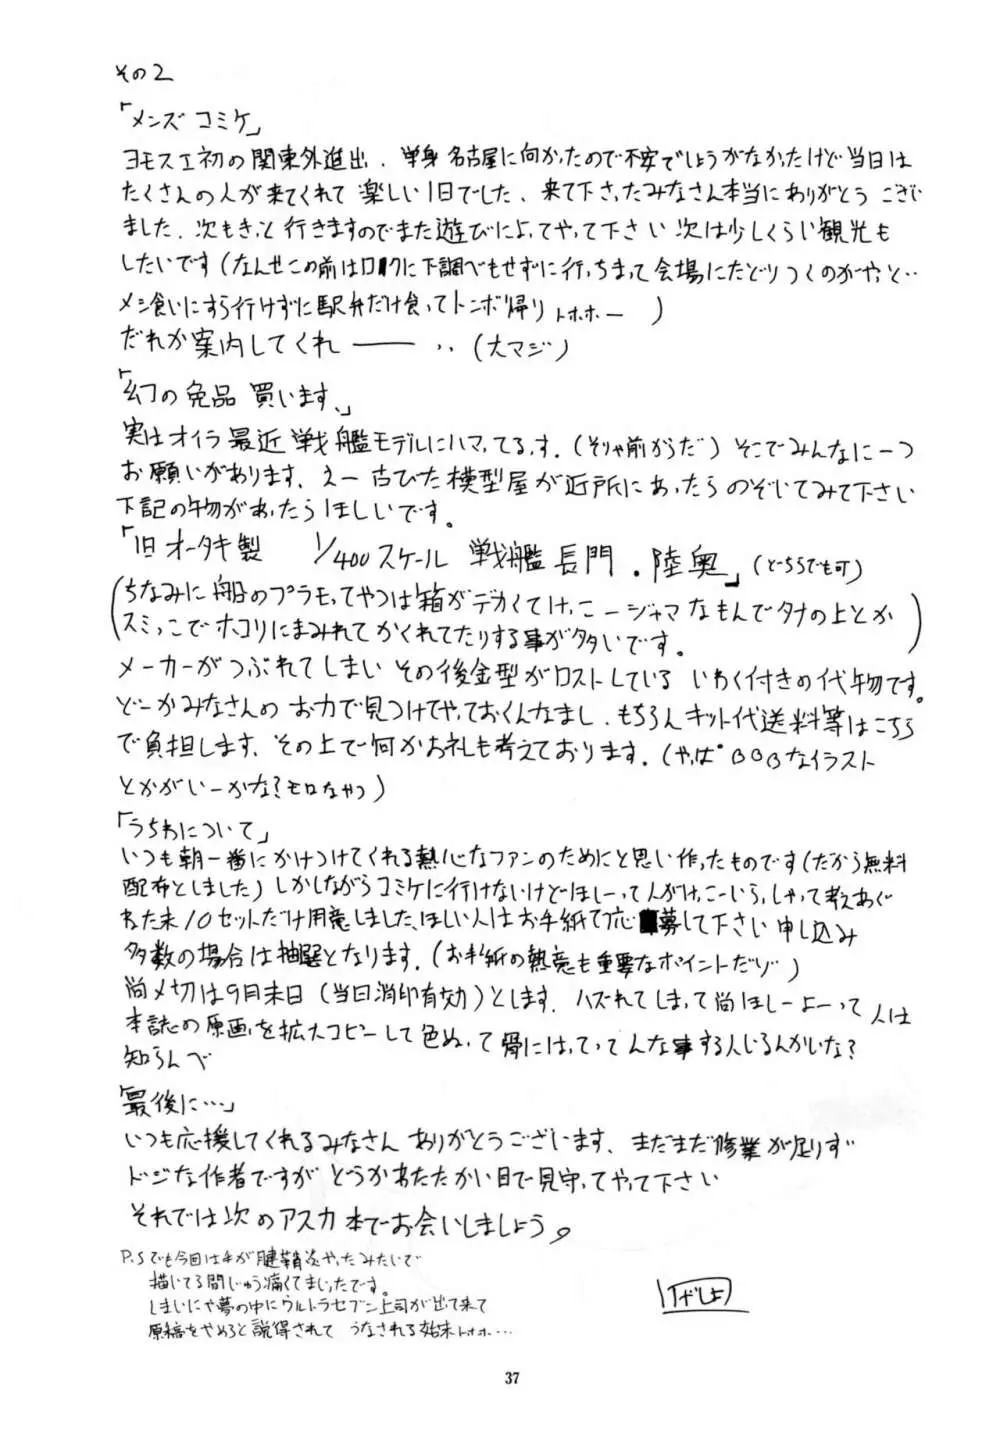 その2
「メンズコミケ」
ヨモスエ初の関東外進出．単身名古屋に向かったので不安でしょうがなかったけど当日は
たくさんの人が来てくれて楽しい1日でした．来て下さったみなさん本当にありがとうござい
ました．次もきっと行きますのでまた遊びによってやって下さい次は少しくらい観光も
したいです(なんせこの前はロクに下調べもせずに行っちまって会場にたどりつくのがやっと‥
メシ食いにすら行けずに駅弁だけ食ってトンボ帰りトホホー)
だれか案内してくれ――‥(大マジ)
「幻の免品買います、」
実はオイラ最近戦艦モデルにハマってるっす．(そりゃ前からだ)そこでみんなに一つ
お願いがあります．えー古びた模型屋が近所にあったらのぞいてみて下さい
下記の物があったらほしいです。
「旧オータキ製 1/400スケール 戦艦長門．陸奥」(どちらでも可)
(ちなみに船のプラモってやつは箱がデカくてけっこージャマなもんでタナの上とか
スミっこでホコリにまみれてかくれてたりする事が多いです。)
メーカーがつぶれてしまいその後金型がロストしているいわく付きの代物です。
どーかみなさんのお力で見つけてやっておくんなまし．もちろんキット代送料等はこちら
で負担します．その上で何かお礼も考えております．(やっぱBBBなイラスト
とかがいーかな?モロなやつ)
「うちわについて」
いつも朝一番にかけつけてくれる熱心なファンのためにと思い作ったものです(だから無料
配布としました)しかしながらコミケに行けないけどほしーって人がけっこーいらっしゃって考えあぐ
ねた末10セットだけ用意しました、ほしい人はお手紙で応募して下さい申し込み
多数の場合は抽選となります．(お手紙の熱意も重要なポイントだゾ)
尚〆切は9月末日(当日消印有効)とします．ハズれてしまって尚ほしーよーって人は
本誌の原画を拡大コピーして色ぬって骨にはってってんな事する人いるんかいな?
知らんべ
「最後に…」
いつも応援してくれるみなさんありがとうございます．まだまだ修業が足りず
ドジな作者ですがどうかあたたかい目で見守ってやって下さい
それでは次のアスカ本でお会いしましょう。
P.Sでも今回は手が腱鞘炎やったみたいで
描いてる間じゅう痛くてまいったです。
しまいにゃ夢の中にウルトラセブン上司が出て来て
原稿をやめろと説得されてうなされる始末トホホ…
37